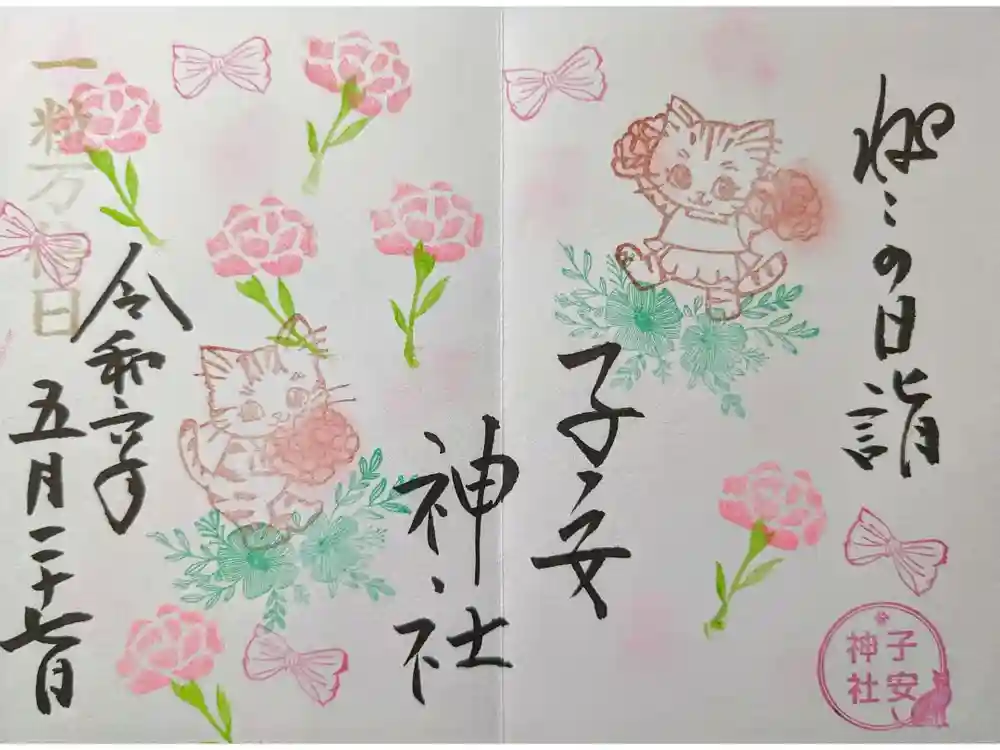 ねこの日詣
子安
神社
令和六年
五月二十七日
一粒万倍日
子安
神社